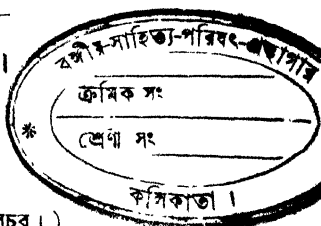 বঙ্গীয়-সাহিত্য-পরিষৎ-গ্রন্থাগার
ক্রমিক সং
* শ্রেণী সং
কলিকাতা ।